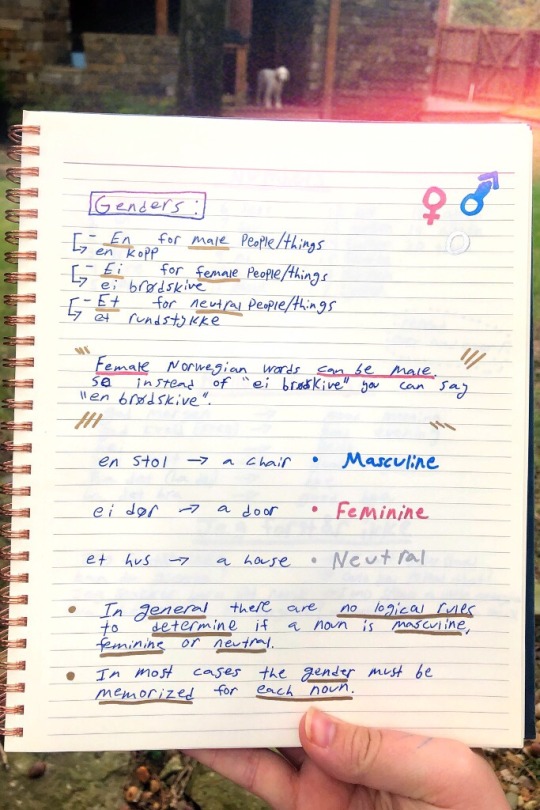 Genders:
- En for male People/things
en kopp
- Ei for female People/things
ei brødskive
- Et for neutral People/things
et rundstykke
Female Norwegian words can be male.
so instead of "ei brødskive" you can say
"en brødskive".
en stol → a chair • Masculine
ei dør → a door • Feminine
et hus → a house • Neutral
• In general there are no logical rules
to determine if a noun is masculine,
feminine or neutral.
• In most cases the gender must be
memorized for each noun.